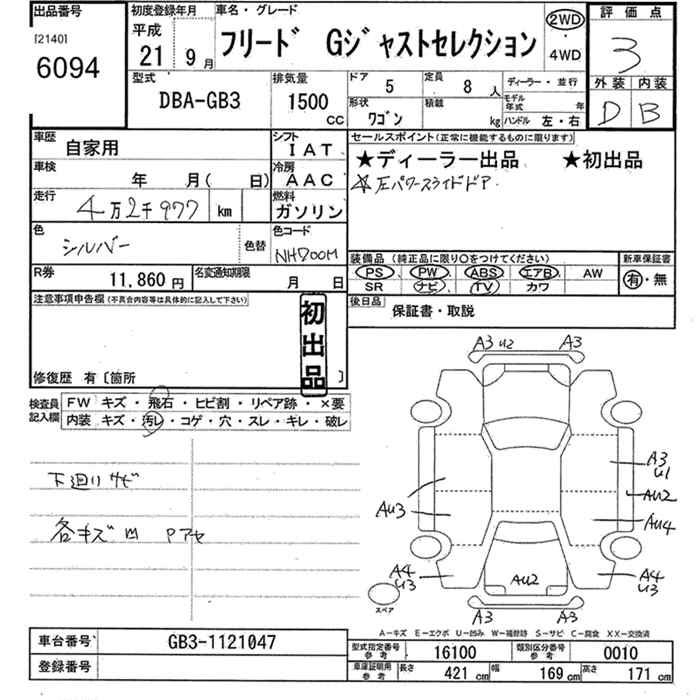 出品番号
[2140]
6094
初度登録年月
平成
21 9月
車名・グレード
フリード Gジャストセレクション
2WD
・
4WD
評価点
3
外装 内装
D B
型式
DBA-GB3
排気量
1500
CC
ドア
5
定員
8 人
形状
ワゴン
積載
kg
ディーラー・並行
モデル年式 年
ハンドル 左・右
車歴
自家用
シフト
IAT
車検
年 月( 日)
冷房
AAC
走行
4万2千977 km
燃料
ガソリン
色
シルバー
色替
色コード
NH700M
R券
11,860円
名変通知期限
月 日
セールスポイント(正常に機能するものに限ります)
★ディーラー出品 ★初出品
☆左パワースライドドア
装備品(純正品に限り○をつけてください)
PS PW ABS エアB AW
SR ナビ TV カワ
新車保証書
有・無
後日品
保証書・取説
注意事項申告欄(不具合内容等は具体的に記入して下さい)
初出品
修復歴 有〔箇所 〕
検査員記入欄
FW キズ・飛石・ヒビ割・リペア跡・×要
内装 キズ・汚レ・コゲ・穴・スレ・キレ・破レ
下廻りサビ
各キズ凹 Pアセ
A3 U2 A3
A3
U1
AU2
AU3
AU4
A4
U3
AU2
A4
U3
スペア
A3 A3
A-キズ E-エクボ U-凹み W-補修跡 S-サビ C-腐食 XX-交換済
車台番号
GB3-1121047
登録番号
型式指定番号参考
16100
類別区分番号参考
0010
車庫証明用参考
長さ 421 cm 幅 169 cm 高さ 171 cm